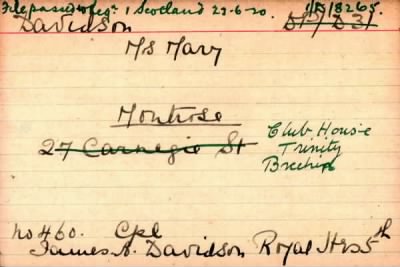 File passed to Regt 1 Scotland 23-6-20. 1/R/8265.
Davidson D.P/D31
Ms Mary
Montrose
27 Carnegie St
Club House
Trinity
Brechin
No 460. Cpl
James A. Davidson Royal Hrs 5th